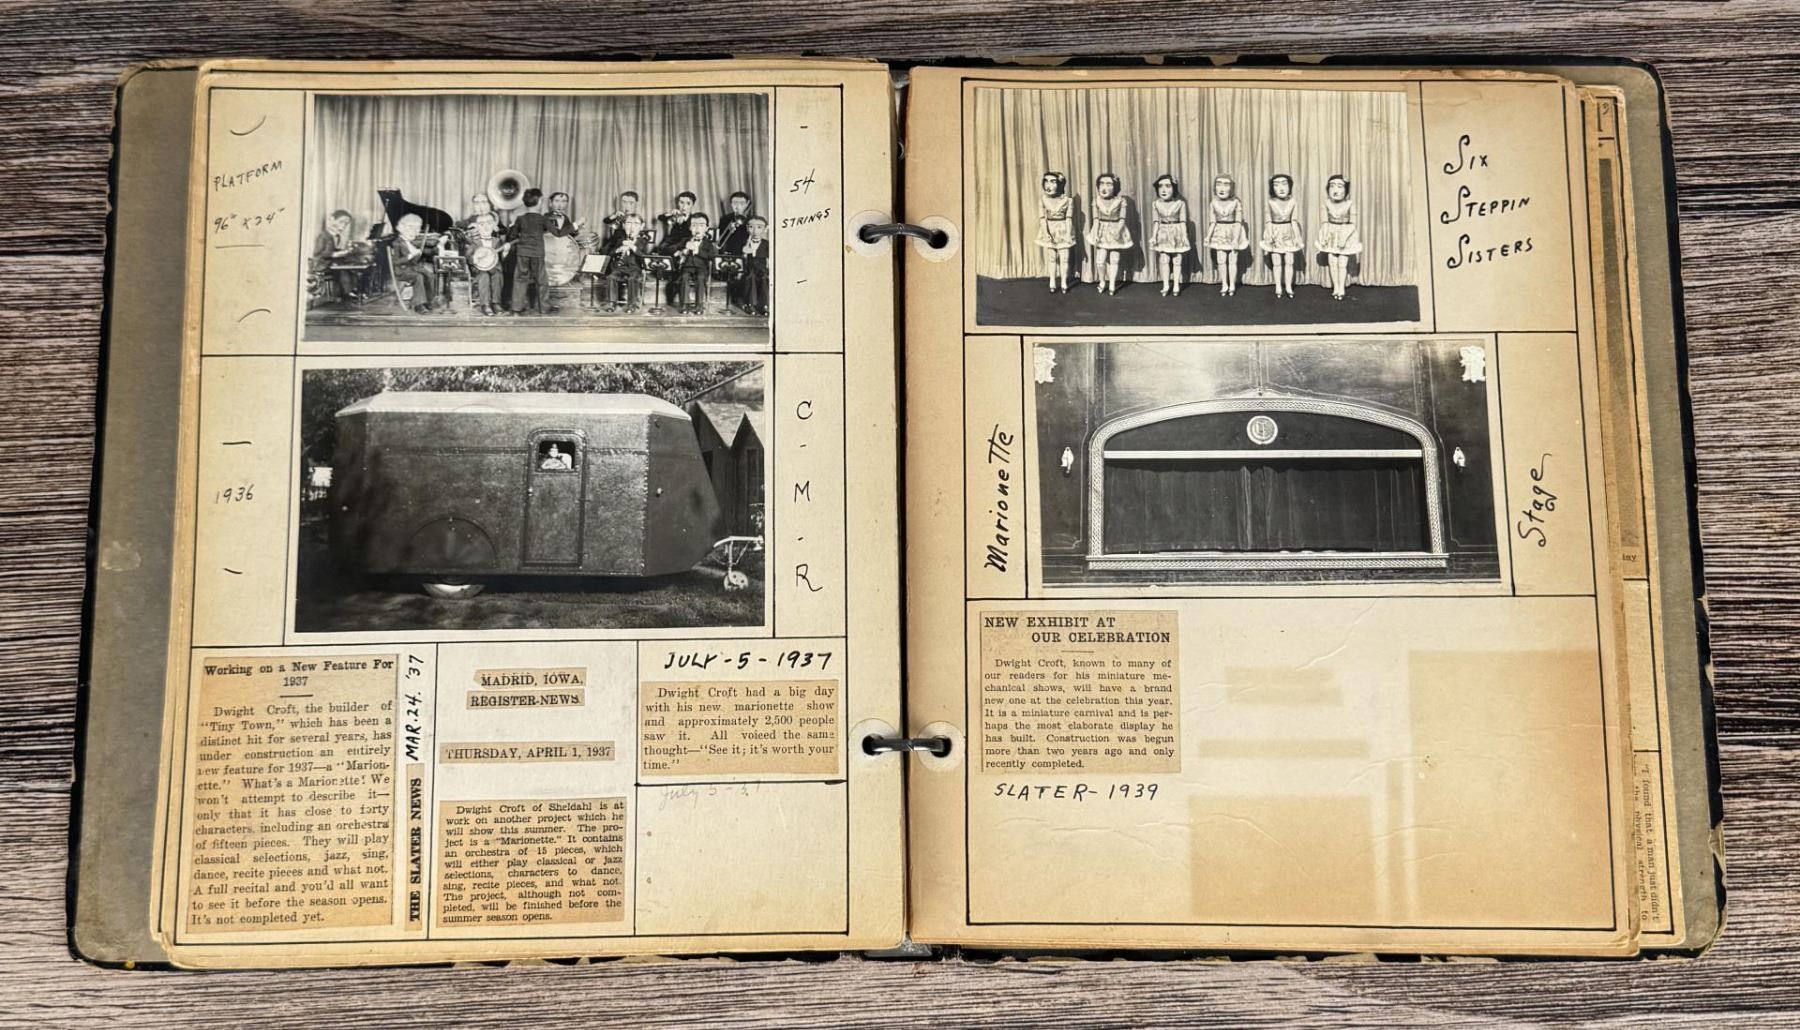 PLATFORM
96" X 24"
54
STRINGS
1936
C
-
M
-
R
Working on a New Feature For
1937
Dwight Croft, the builder of
"Tiny Town," which has been a
distinct hit for several years, has
under construction an entirely
new feature for 1937—a "Marion-
ette." What's a Marionette? We
won't attempt to describe it—
only that it has close to forty
characters, including an orchestra
of fifteen pieces. They will play
classical selections, jazz, sing,
dance, recite pieces and what not.
A full recital and you'd all want
to see it before the season opens.
It's not completed yet.
THE SLATER NEWS MAR. 24. '37
MADRID, IOWA,
REGISTER-NEWS
THURSDAY, APRIL 1, 1937
Dwight Croft of Sheldahl is at
work on another project which he
will show this summer. The pro-
ject is a "Marionette." It contains
an orchestra of 15 pieces, which
will either play classical or jazz
selections, characters to dance,
sing, recite pieces, and what not.
The project, although not com-
pleted, will be finished before the
summer season opens.
JULY - 5 - 1937
Dwight Croft had a big day
with his new marionette show
and approximately 2,500 people
saw it. All voiced the same
thought—"See it; it's worth your
time."
July 5 - 37
SIX
STEPPIN
SISTERS
Marionette
Stage
NEW EXHIBIT AT
OUR CELEBRATION
Dwight Croft, known to many of
our readers for his miniature me-
chanical shows, will have a brand
new one at the celebration this year.
It is a miniature carnival and is per-
haps the most elaborate display he
has built. Construction was begun
more than two years ago and only
recently completed.
SLATER - 1939
"I found that a man just didn't
the physical strength to